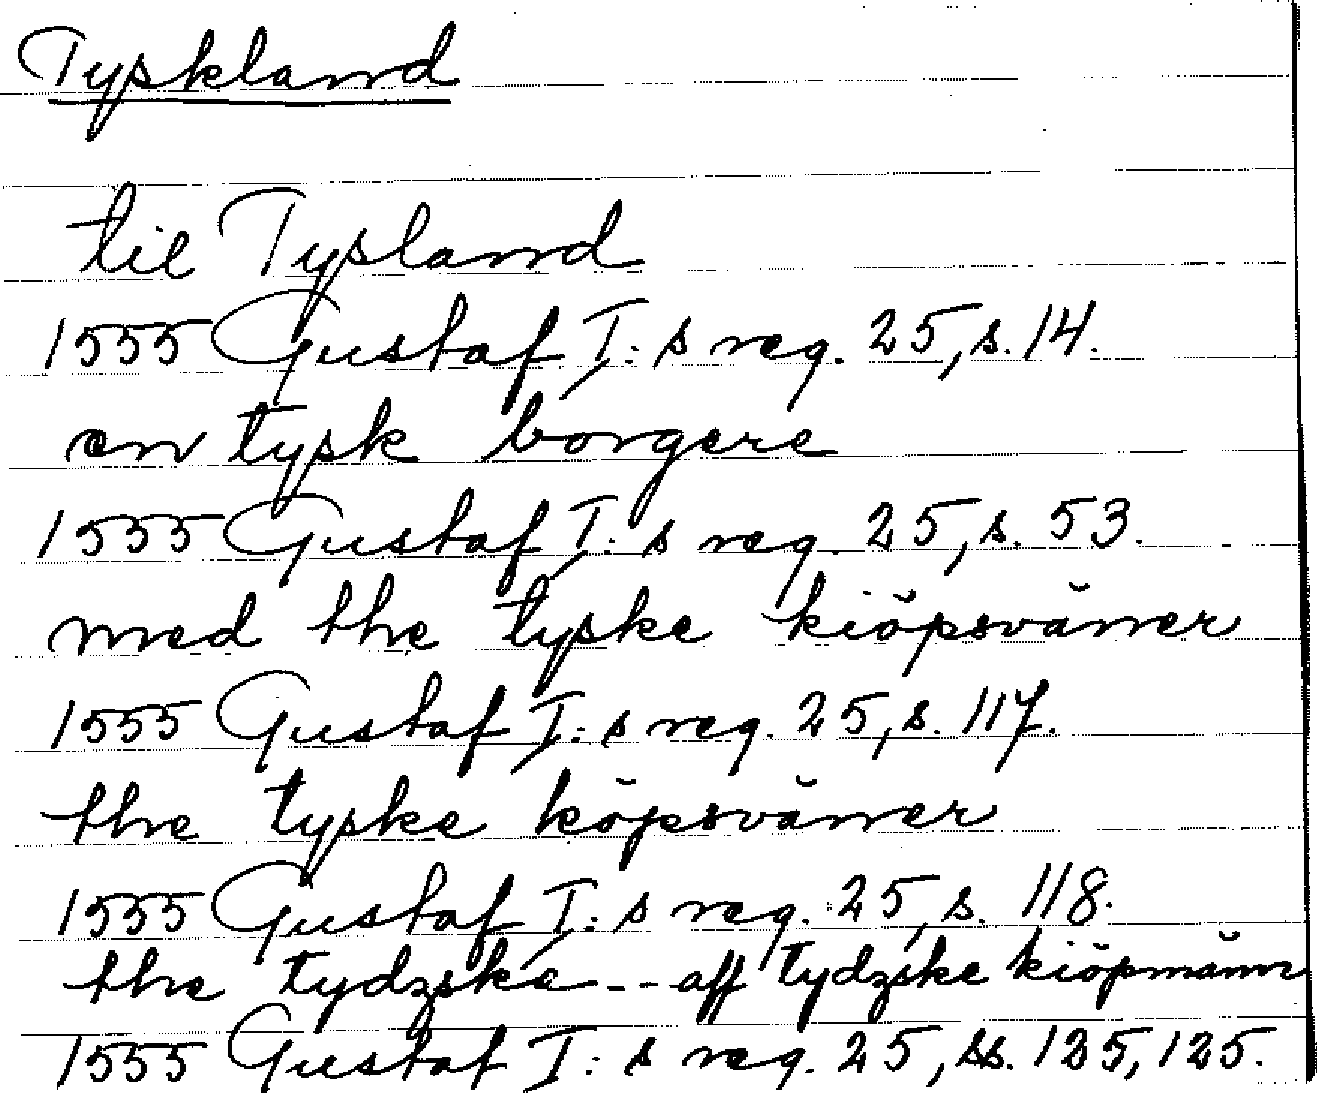 Tyskland
til Tysland
1555 Gustaf I: s reg. 25, s. 14.
en tysk borgere
1555 Gustaf I: s reg. 25, s. 53.
med the tyske kiöpsväner
1555 Gustaf I: s reg. 25, s. 117.
the tyske köpsväner
1555 Gustaf I: s reg. 25, s. 118.
the tydzske -- aff tydzske kiöpmänn
1555 Gustaf I: s reg. 25, ss. 125, 125.